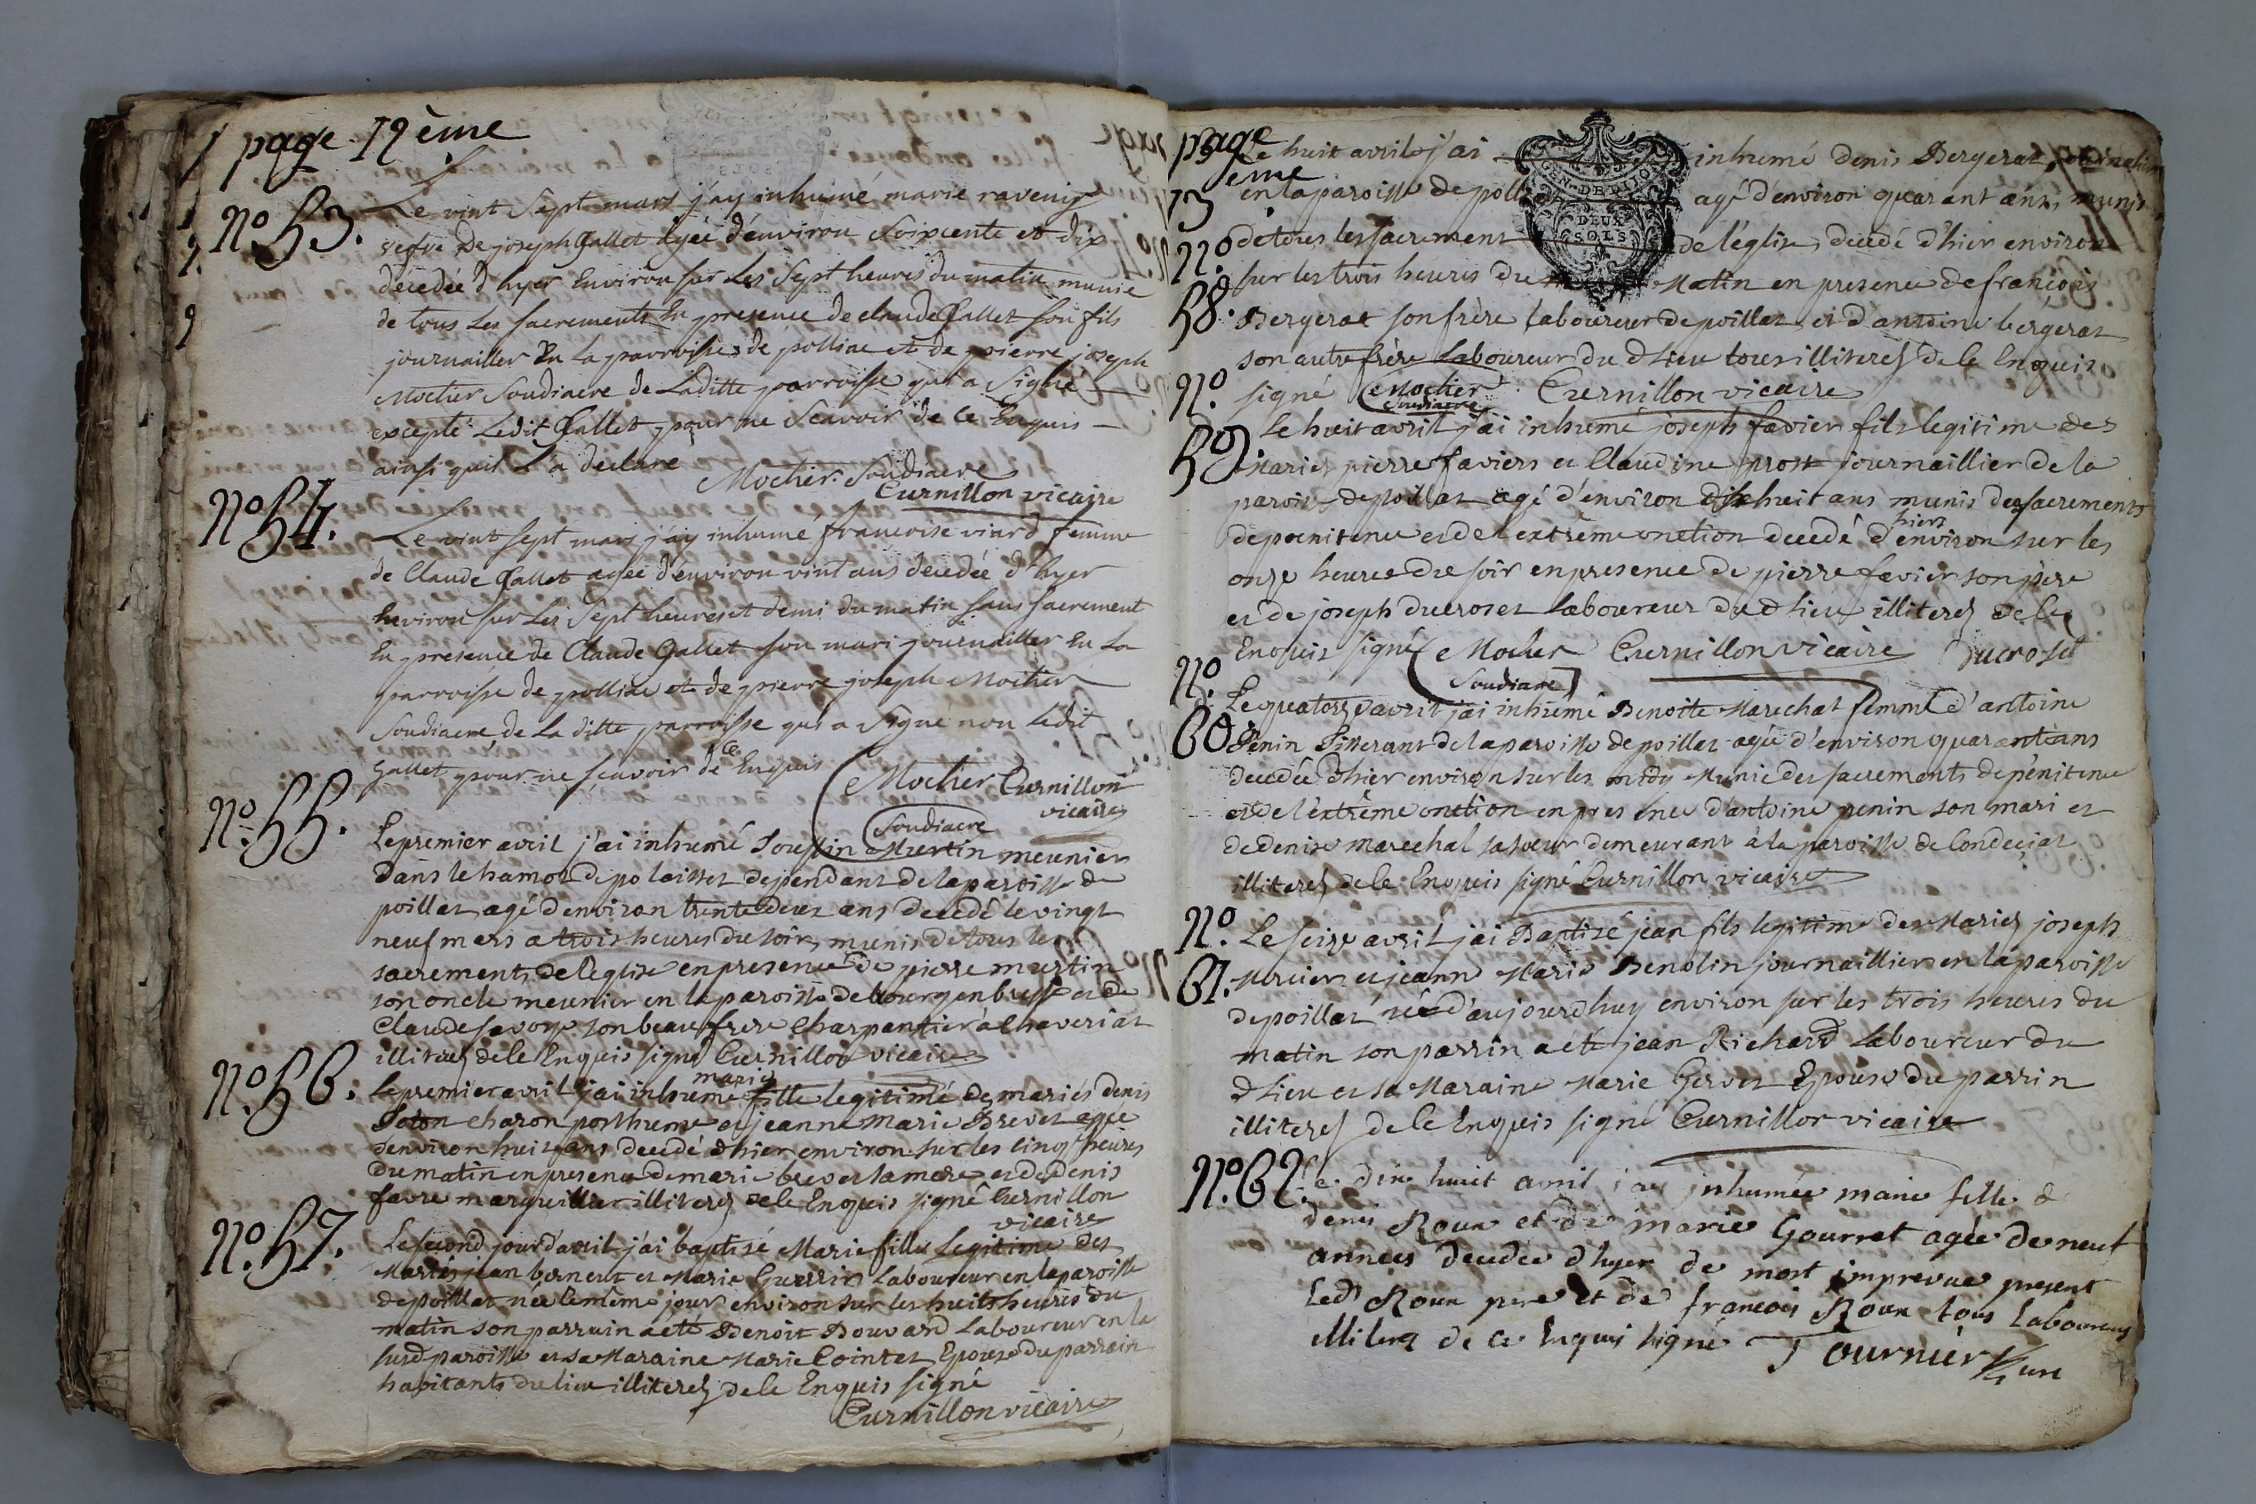 page 12ème
No 53.
Le vint Sept mars j'ay inhumé marie ravenig
vefve De joseph Gallet agée d'environ Soixente et dix
décedée d'hyer Environ sur Les Sept heures du matin munie
de tous Les sacrements En presence de claude Gallet son fils
journailler En La parroisse de polliac et de pierre joseph
Mocher Soudiacre de Laditte parroisse qui a Signé
excepté Ledit Gallet pour ne Scavoir de ce Enquis
ainsi qu'il L'a declaré
Mocher Soudiacre
Curnillon vicaire
No 54.
Le vint sept mars j'ay inhumé francoise viard femme
de Claude Gallet agée d'environ vint ans decedée d'hyer
Environ sur Les Sept heures et demi du matin sans sacrement
En presence de Claude Gallet son mari journailler En La
parroisse de polliac et de pierre joseph Mocher
Soudiacre de La ditte parroisse qui a Signé non Ledit
Gallet pour ne scavoir de ce Enquis
Mocher Curnillon
Soudiacre vicaire
No 55.
Le premier avril j'ai inhumé Murtin meunier
dans le hamot de po laisset dependant de la paroisse de
poillat agé d'environ trente deux ans decedé le vingt
neuf mars a trois heures du soir, munis de tous les
sacrements de l'eglise en presence de pierre murtin
son oncle meunier en la paroisse de bourgenbresse et de
Claude savoye son beaufrere charpantier a chaveriat
illiteres de le Enquis signé Curnillon vicaire
No 56.
Le premier avril j'ai inhumé marie fille legitime des mariés denis
charon posthume et jeanne marie Brevet agée
d'environ huit ans decedé d'hier environ sur les cinq heures
du matin en presence de marie brevet sa mere et de Denis
favre marguillier illiteres de le Enquis signé Curnillon
vicaire
No 57.
Le second jour d'avril j'ai baptisé Marie fille Legitime des
Mariés jean berneut et Marie Guerrin Laboureur en la paroisse
de poillat née le même jour environ sur les huits heures du
matin son parrain a eté Benoit Bouvard Laboureur en la
susd paroisse et sa Maraine Marie Cointet Epouse du parrain
habitants du lieu illiteres de le Enquis signé
Curnillon vicaire
page
13 eme
No
58.
Le huit avril j'ai inhumé denis Bergerat
en la paroisse de agé d'environ quarant ans, munis
de tous les sacrement de l'église, decedé d'hier environ
sur les trois heures du Matin en presence de françois
Bergerat son frère laboureur de poillat et d'antoine bergerat
son autre frère Laboureur du d lieu tous illiteres de le Enquis
signé Mocher Curnillon vicaire
Soudiacre
GEN. DE DIJON
DEUX
SOLS
No
59
Le huit avril j'ai inhumé joseph favier fils legitime des
Mariés pierre faviers et Claudine prost journaillier de la
paroisse de poillat agé d'environ dix huit ans munis des sacrements
de poenitence et de l'extrème onction decedé d'hier environ sur les
onze heures du soir en presence de pierre favier son père
et de joseph ducroset laboureur du d lieu illiteres de le
Enquis signé Mocher Curnillon vicaire ducroset
Soudiacre
No
60
Le quatorze avril j'ai inhumé Benoite Marechal femme d'antoine
Penin Tisserant de la paroisse de poillat agée d'environ quarante ans
decedée d'hier environ sur les midy Munie des sacrements de pénitence
et de l'extrème onction en presence d'antoine penin son mari et
de denise marechal sa soeur demeurant à la paroisse de Condeciat
illiteres de le Enquis signé Curnillon vicaire
No.
61.
Le seize avril j'ai Baptisé jean fils legitime des Mariés joseph
Mercier et jeanne Marie Benolin journaillier en la paroisse
de poillat né d'aujourdhuy environ sur les trois heures du
matin son parrin a été jean Richard Laboureur du
d lieu et sa Maraine Marie Gervet Epouse du parrin
illiteres de le Enquis signé Curnillon vicaire
No. 62.
Le dix huit avril j'ai inhumée marie fille de
denis Roux et de marie Gourret agée de neuf
années decedée d'hyer de mort imprevue present
led Roux pere et de francois Roux tous laboureurs
illiterez de ce Enquis signé Tournier Cure